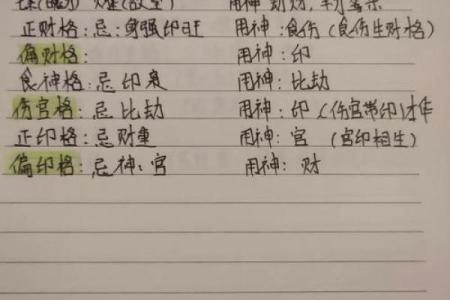 用神 劫财,
正财格:忌:身强印旺 用神:食伤(食伤生财格)
偏财格: 用神:印
食神格:忌印枭 用神:比劫
伤官格:忌比劫 用神:印(伤官带印)才华
正印格:忌财重 用神:官(官印相生)
偏印格:忌神:官 用神:财